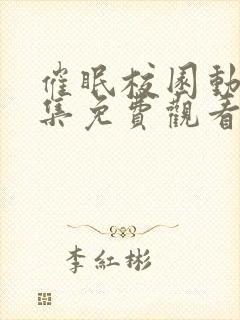 催眠校园動
集免費觀看
李紅彬